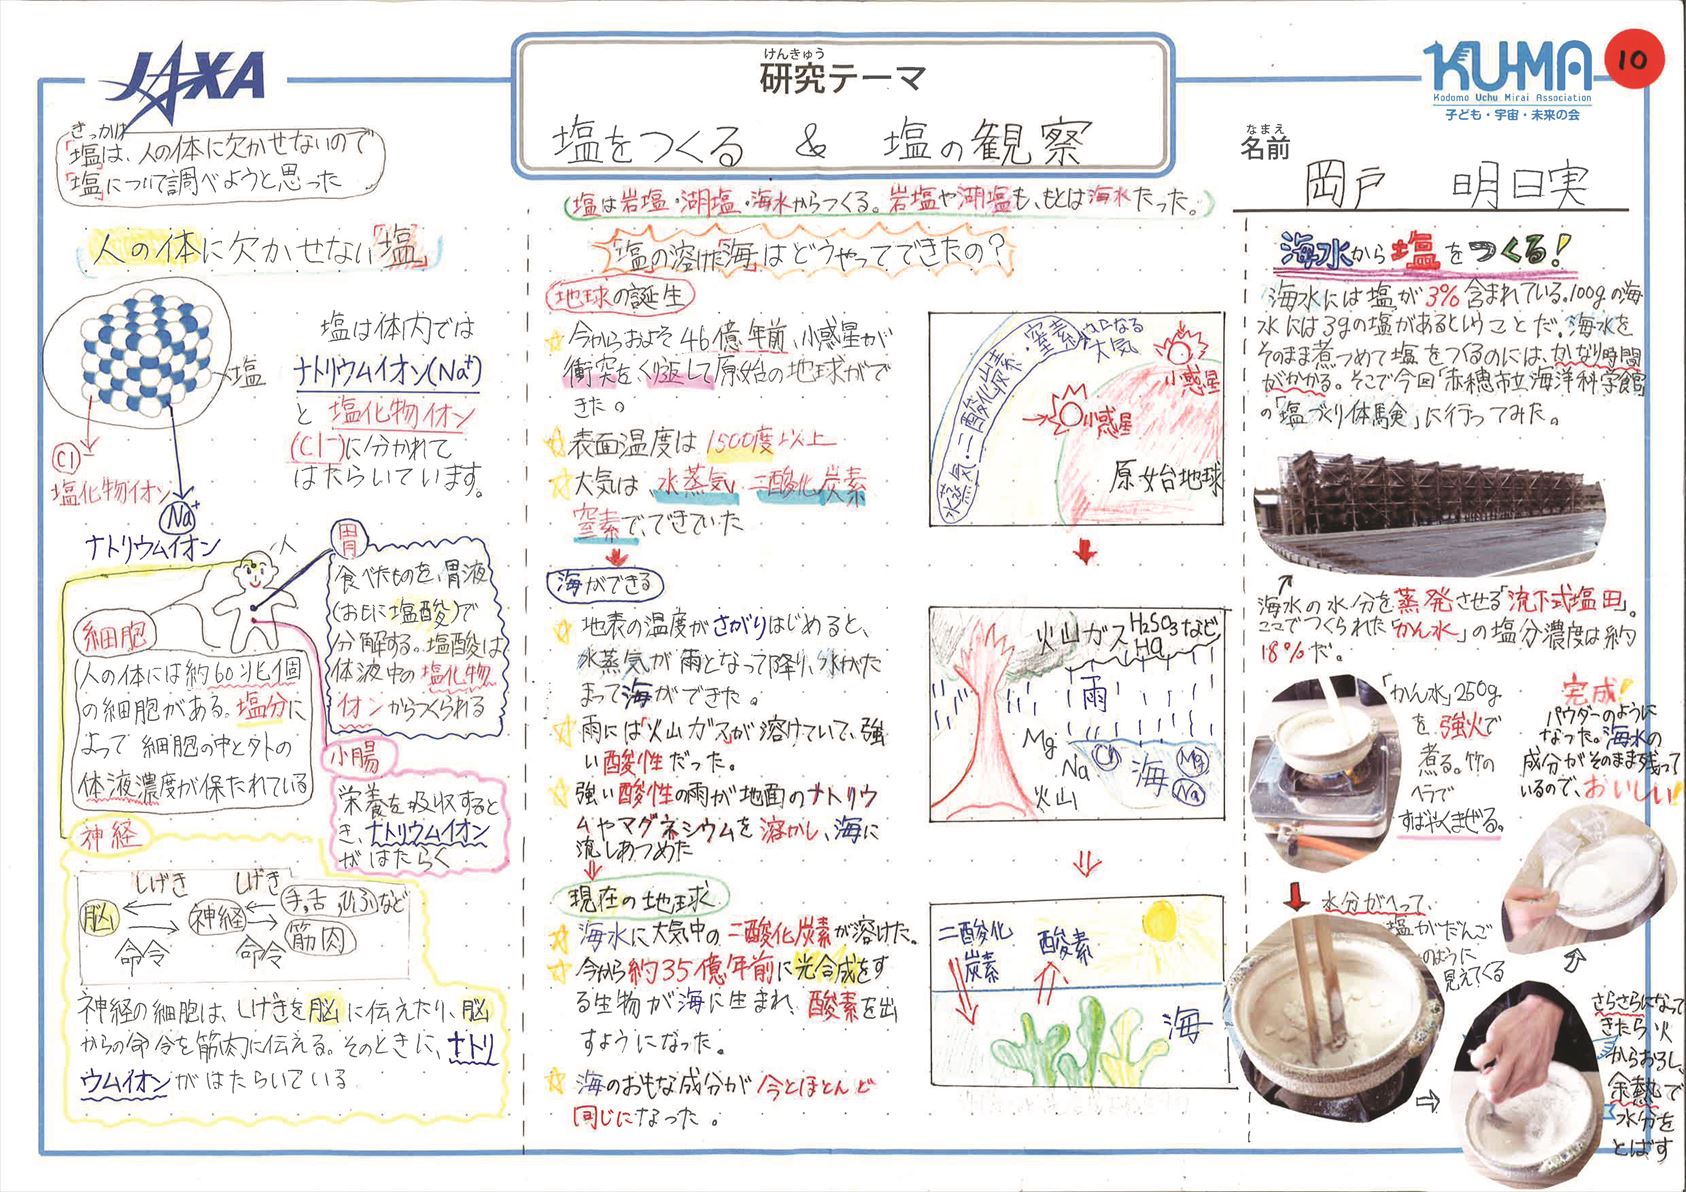 JAXA
けんきゅう
研究テーマ
塩をつくる & 塩の観察
KU-MA
Kodomo Uchu Mirai Association
子ども・宇宙・未来の会
10
なまえ
名前
岡戸 明日実
きっかけ
「塩」は、人の体に欠かせないので
「塩」について調べようと思った
人の体に欠かせない「塩」
塩
Cl⁻
塩化物イオン
Na⁺
ナトリウムイオン
塩は体内では
ナトリウムイオン(Na⁺)
と 塩化物イオン
(Cl⁻)に分かれて
はたらいています。
人
細胞
人の体には約60兆個
の細胞がある。塩分に
よって 細胞の中と外の
体液濃度が保たれている
胃
食べたものを、胃液
(おもに塩酸)で
分解する。塩酸は
体液中の塩化物
イオンからつくられる
小腸
栄養を吸収すると
き、ナトリウムイオン
がはたらく
神経
しげき しげき
脳 神経 手,舌,ひふなど
筋肉
命令 命令
神経の細胞は、しげきを脳に伝えたり、脳
からの命令を筋肉に伝える。そのときに、ナトリ
ウムイオンがはたらいている
塩は岩塩・湖塩・海水からつくる。岩塩や湖塩も、もとは海水だった。
「塩」の溶けた「海」はどうやってできたの?
地球の誕生
今からおよそ46億年前、小惑星が
衝突を、くり返して原始の地球がで
きた。
表面温度は1500度以上
大気は、水蒸気 二酸化炭素
窒素で、できていた
水蒸気・二酸化炭素・窒素
大気
小惑星
小惑星
原始地球
海ができる
地表の温度がさがりはじめると、
水蒸気が雨となって降り、水がた
まって海ができた。
雨には「火山ガス」が溶けていて、強
い酸性だった。
強い酸性の雨が地面のナトリウ
ムやマグネシウムを溶かし、海に
流しあつめた
火山ガス H₂SO₃など
HCl
雨
Mg
Na
火山
海
Mg
Na
現在の地球
海水に大気中の二酸化炭素が溶けた。
今から約35億年前に光合成をす
る生物が海に生まれ、酸素を出
すようになった。
海のおもな成分が今とほとんど
同じになった。
二酸化
炭素
酸素
海
海水から塩をつくる!
海水には塩が3%含まれている。100gの海
水には3gの塩があるということだ。海水を
そのまま煮つめて塩をつくるのには、かなり時間
がかかる。そこで今回「赤穂市立海洋科学館
の「塩づくり体験」に行ってみた。
海水の水分を蒸発させる「流下式塩田」。
ここでつくられた「かん水」の塩分濃度は約
18%だ。
「かん水」250g
を強火で
煮る。竹の
ヘラで
すばやくまぜる。
水分がへって、
塩がだんご
のように
見えてくる
さらさらになって
きたら火
からおろし、
余熱で
水分を
とばす
完成!
パウダーのように
なった。海水の
成分がそのまま残って
いるので、おいしい!